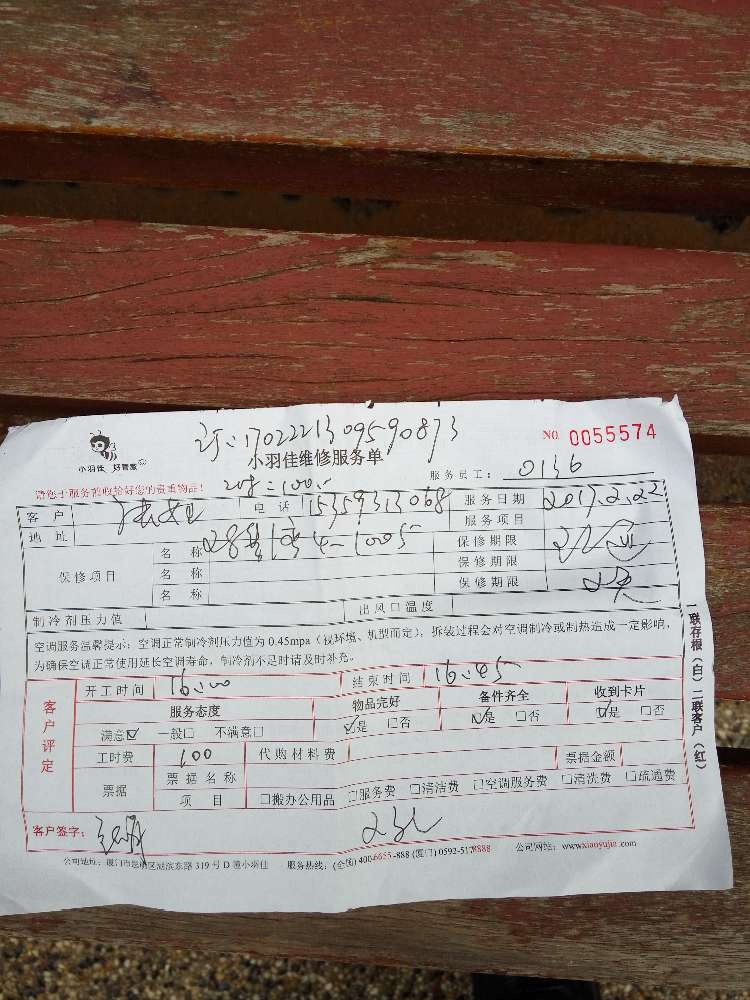 1702221309590873
小羽佳 好管家
小羽佳维修服务单
NO 0055574
服务员工: 0136
请您于服务前收拾好您的贵重物品!
客户 电话 15359313068 服务日期 2017.2.22
地址 服务项目
保修项目 名称 4-1005 保修期限
名称 保修期限
名称 保修期限
制冷剂压力值 出风口温度
空调服务温馨提示: 空调正常制冷剂压力值为 0.45mpa (视环境、机型而定), 拆装过程会对空调制冷或制热造成一定影响,
为确保空调正常使用延长空调寿命, 制冷剂不足时请及时补充。
客户评定
开工时间 16:00 结束时间 16:45
服务态度 物品完好 备件齐全 收到卡片
满意☑ 一般□ 不满意□ ☑是 □否 ☑是 □否 ☑是 □否
工时费 100 代购材料费
票据 票据名称 票据金额
项目 □搬办公用品 □服务费 □清洁费 □空调服务费 □清洗费 □疏通费
客户签字:
公司地址: 厦门市思明区湖滨东路 319 号 D 幢小羽佳 服务热线: (全国) 400-6655-888 (厦门) 0592-5178888 公司网站: www.xiaoyujia.com
一联存根(白)二联客户(红)